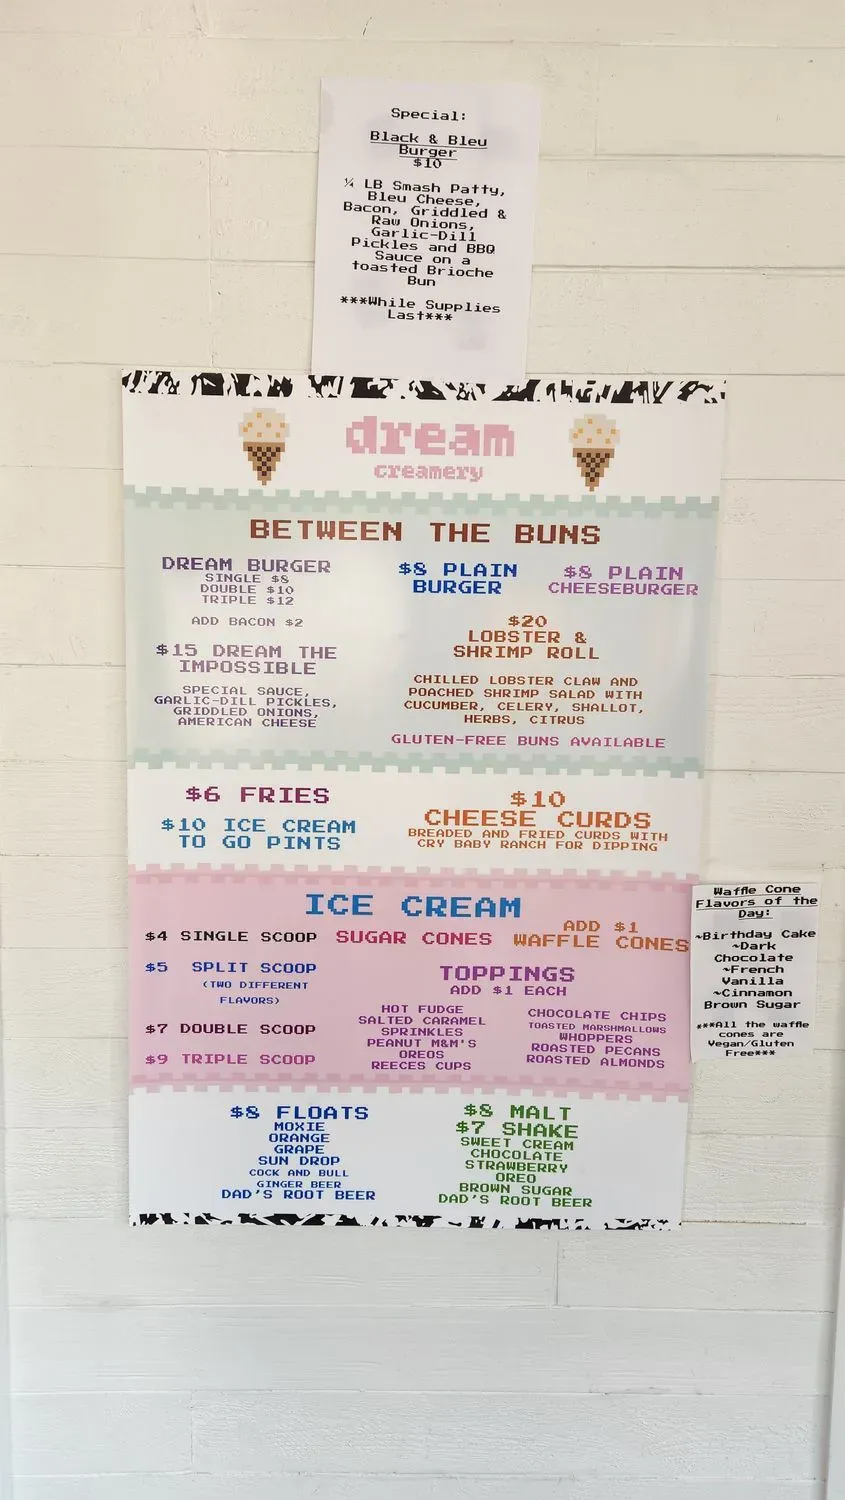 Special:
Black & Bleu
Burger
$10
¼ LB Smash Patty,
Bleu Cheese,
Bacon, Griddled &
Raw Onions,
Garlic-Dill
Pickles and BBQ
Sauce on a
toasted Brioche
Bun
***While Supplies
Last***
dream
creamery
BETWEEN THE BUNS
DREAM BURGER
SINGLE $8
DOUBLE $10
TRIPLE $12
ADD BACON $2
$15 DREAM THE
IMPOSSIBLE
SPECIAL SAUCE,
GARLIC-DILL PICKLES,
GRIDDLED ONIONS,
AMERICAN CHEESE
$8 PLAIN
BURGER
$8 PLAIN
CHEESEBURGER
$20
LOBSTER &
SHRIMP ROLL
CHILLED LOBSTER CLAW AND
POACHED SHRIMP SALAD WITH
CUCUMBER, CELERY, SHALLOT,
HERBS, CITRUS
GLUTEN-FREE BUNS AVAILABLE
$6 FRIES
$10 ICE CREAM
TO GO PINTS
$10
CHEESE CURDS
BREADED AND FRIED CURDS WITH
CRY BABY RANCH FOR DIPPING
ICE CREAM
$4 SINGLE SCOOP
$5 SPLIT SCOOP
(TWO DIFFERENT
FLAVORS)
$7 DOUBLE SCOOP
$9 TRIPLE SCOOP
SUGAR CONES
ADD $1
WAFFLE CONES
TOPPINGS
ADD $1 EACH
HOT FUDGE
SALTED CARAMEL
SPRINKLES
PEANUT M&M'S
OREOS
REECES CUPS
CHOCOLATE CHIPS
TOASTED MARSHMALLOWS
WHOPPERS
ROASTED PECANS
ROASTED ALMONDS
Waffle Cone
Flavors of the
Day:
~Birthday Cake
~Dark
Chocolate
~French
Vanilla
~Cinnamon
Brown Sugar
***All the waffle
cones are
Vegan/Gluten
Free***
$8 FLOATS
MOXIE
ORANGE
GRAPE
SUN DROP
COCK AND BULL
GINGER BEER
DAD'S ROOT BEER
$8 MALT
$7 SHAKE
SWEET CREAM
CHOCOLATE
STRAWBERRY
OREO
BROWN SUGAR
DAD'S ROOT BEER